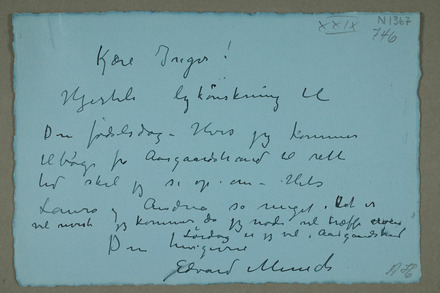 XXIX N 1367
746
Kære Inger!
Hjertelig lykönskning til
Din födselsdag – Hvis jeg kommer
tilbage fra Aasgaardstrand til rett
tid skal jeg se op om – Hils
Laura og Andrea så meget. Det er
vel jeg kommer da jeg vel træffe
Lördag er jeg vel i Aasgaardstrand
Din hengivne
Edvard Munch